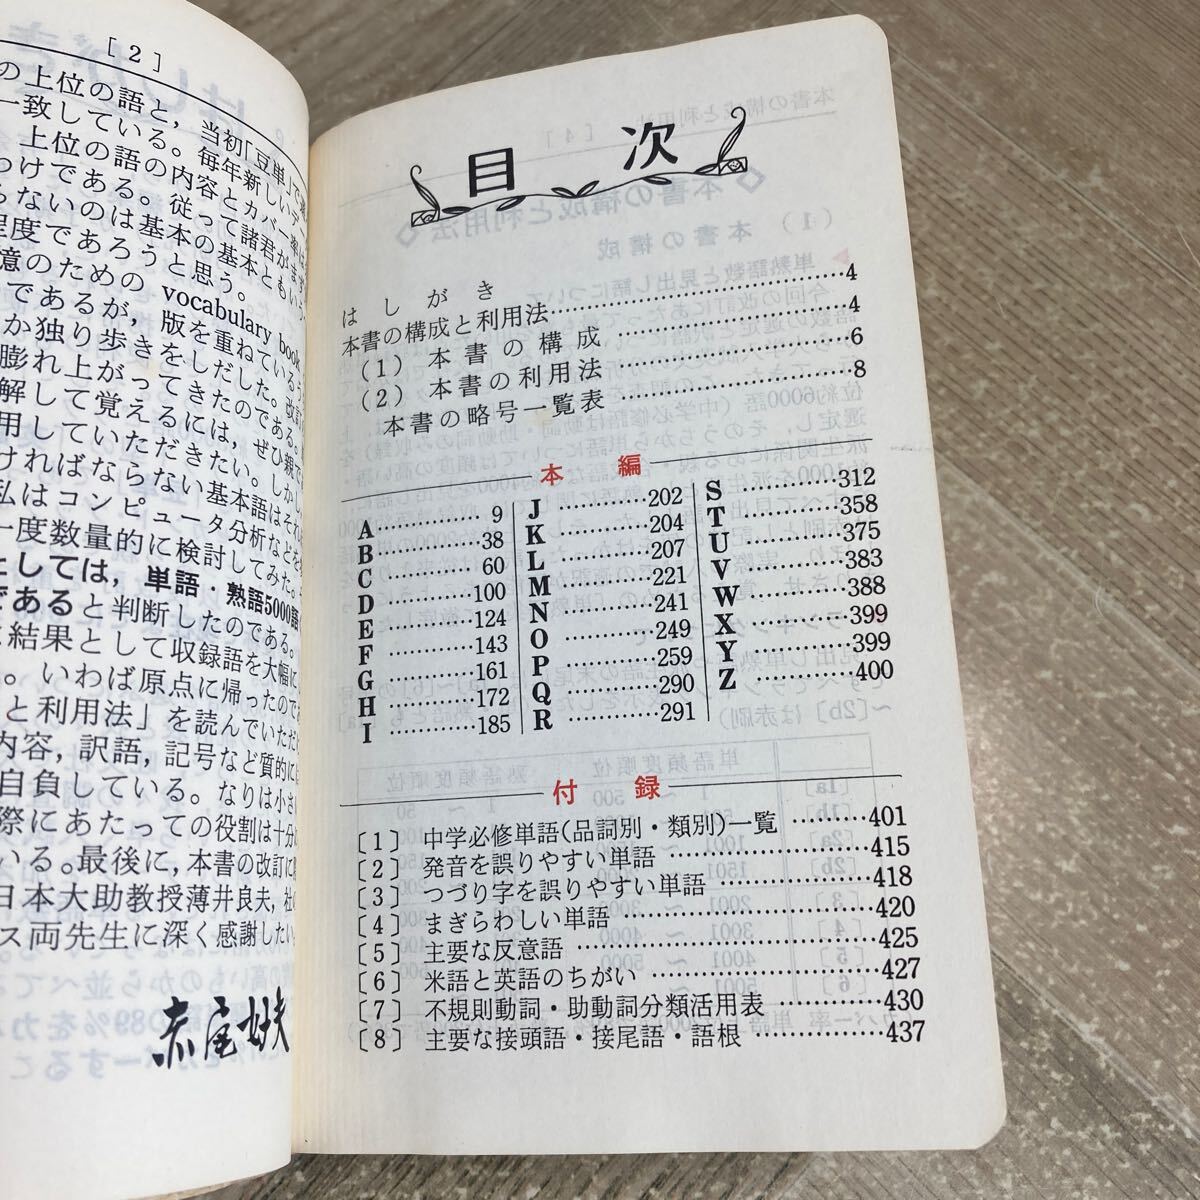 [2]
の上位の語と，当初「豆単」で
一致している。毎年新しいデー
，上位の語の内容とカバー率に
つけである。従って諸君がまず
らないのは基本の基本ともいう
程度であろうと思う。
憶のための vocabulary book
であるが，版を重ねているう
か独り歩きをしだした。改訂
膨れ上がってきたのである。
解して覚えるには，ぜひ親
用していただきたい。しかし
ければならない基本語はそれ
私はコンピュータ分析などを
一度数量的に検討してみた。
としては，単語・熟語5000語
であると判断したのである。
結果として収録語を大幅に
。いわば原点に帰ったので
と利用法」を読んでいただ
内容，訳語，記号など質的に
自負している。なりは小さ
際にあたっての役割は十分に
いる。最後に，本書の改訂に
日本大助教授薄井良夫，
ス両先生に深く感謝したい
赤尾好夫
目次
はしがき
本書の構成と利用法 4
(1) 本書の構成 4
(2) 本書の利用法 6
本書の略号一覧表 8
本編
A 9
B 38
C 60
D 100
E 124
F 143
G 161
H 172
I 185
J 202
K 204
L 207
M 221
N 241
O 249
P 259
Q 290
R 291
S 312
T 358
U 375
V 383
W 388
X 399
Y 399
Z 400
付録
〔1〕 中学必修単語(品詞別・類別)一覧 401
〔2〕 発音を誤りやすい単語 415
〔3〕 つづり字を誤りやすい単語 418
〔4〕 まぎらわしい単語 420
〔5〕 主要な反意語 425
〔6〕 米語と英語のちがい 427
〔7〕 不規則動詞・助動詞分類活用表 430
〔8〕 主要な接頭語・接尾語・語根 437